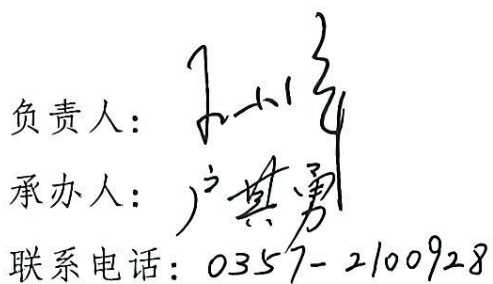 负责人：
承办人：户其勇
联系电话：0357-2100928